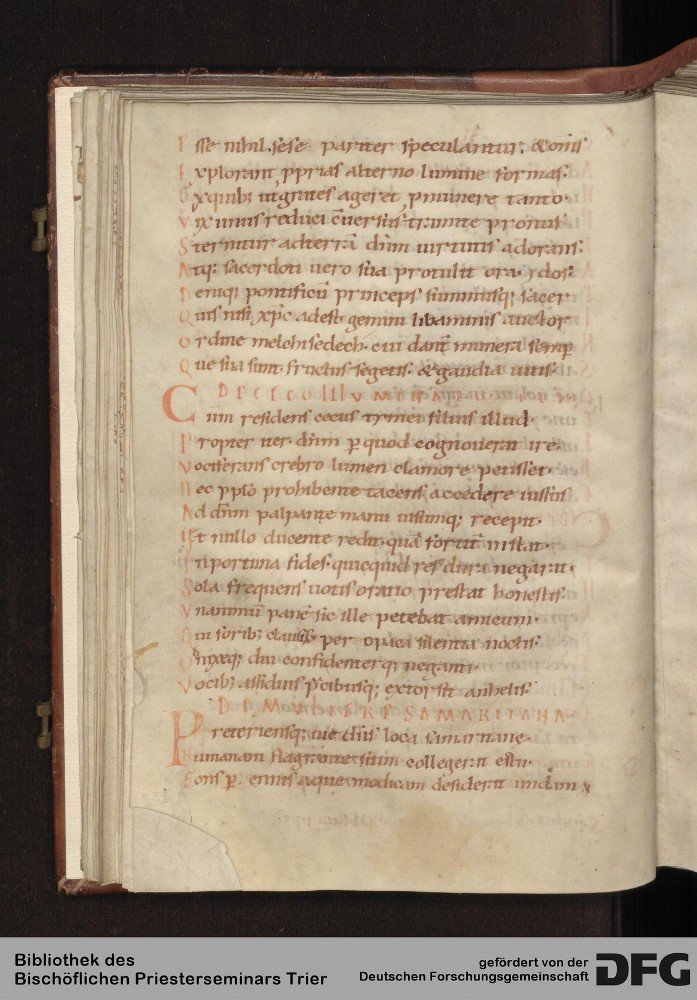 Esse nihil. sese pariter speculantur. & om̄s
Explorant pprias alterno lumine formas.
Ex quib; ut grates ageret p munere tanto.
Vix unus reduci cuersus tramite pronus
Sternitur ad terrā dnm uirtutis adorans:
Atq: sacerdoti uero sua protulit ora.
Deniq; pontificū princeps summusq; sacerdos:
Quis nisi xpc adest gemini libaminis auctor
Ordine melchisedech. cui dant munera semp
Que sua sunt fructus segetis. & gaudia uitis:
DE CECO ILLUMINATO
Cum residens cecus timei filius illud
Propter iter. dnm p quod cognouerat ire.
Vociferans crebro lumen clamore petisset.
Nec pplo prohibente tacens accedere iussus
Ad dnm palpante manu uisumq; recepit.
Et nullo ducente redit. quā fortit instat.
Inportuna fides. quicquid res dura negarit.
Sola frequens uotis oratio prestat honestis:
Vnanimū panē sic ille petebat amicum.
Cui forib; clausis per opaca silentia noctis:
Nixaq; diu confidenterq; neganti.
Vocib; assiduis pcibusq; extorsit anhelis:
DE MULIERE SAMARITANA
Preteriensq; uie dius loca samaritane.
Humanam flagrante sitim collegerat estu.
Fons p ennis aque modicam desiderat undam
Bibliothek des
Bischöflichen Priesterseminars Trier
gefördert von der
Deutschen Forschungsgemeinschaft
DFG